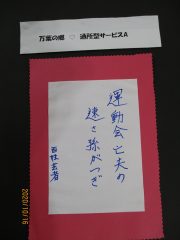 万葉の郷 ♡ 通所型サービスA
運動会亡夫の
速さ孫がつぎ
2020/10/16